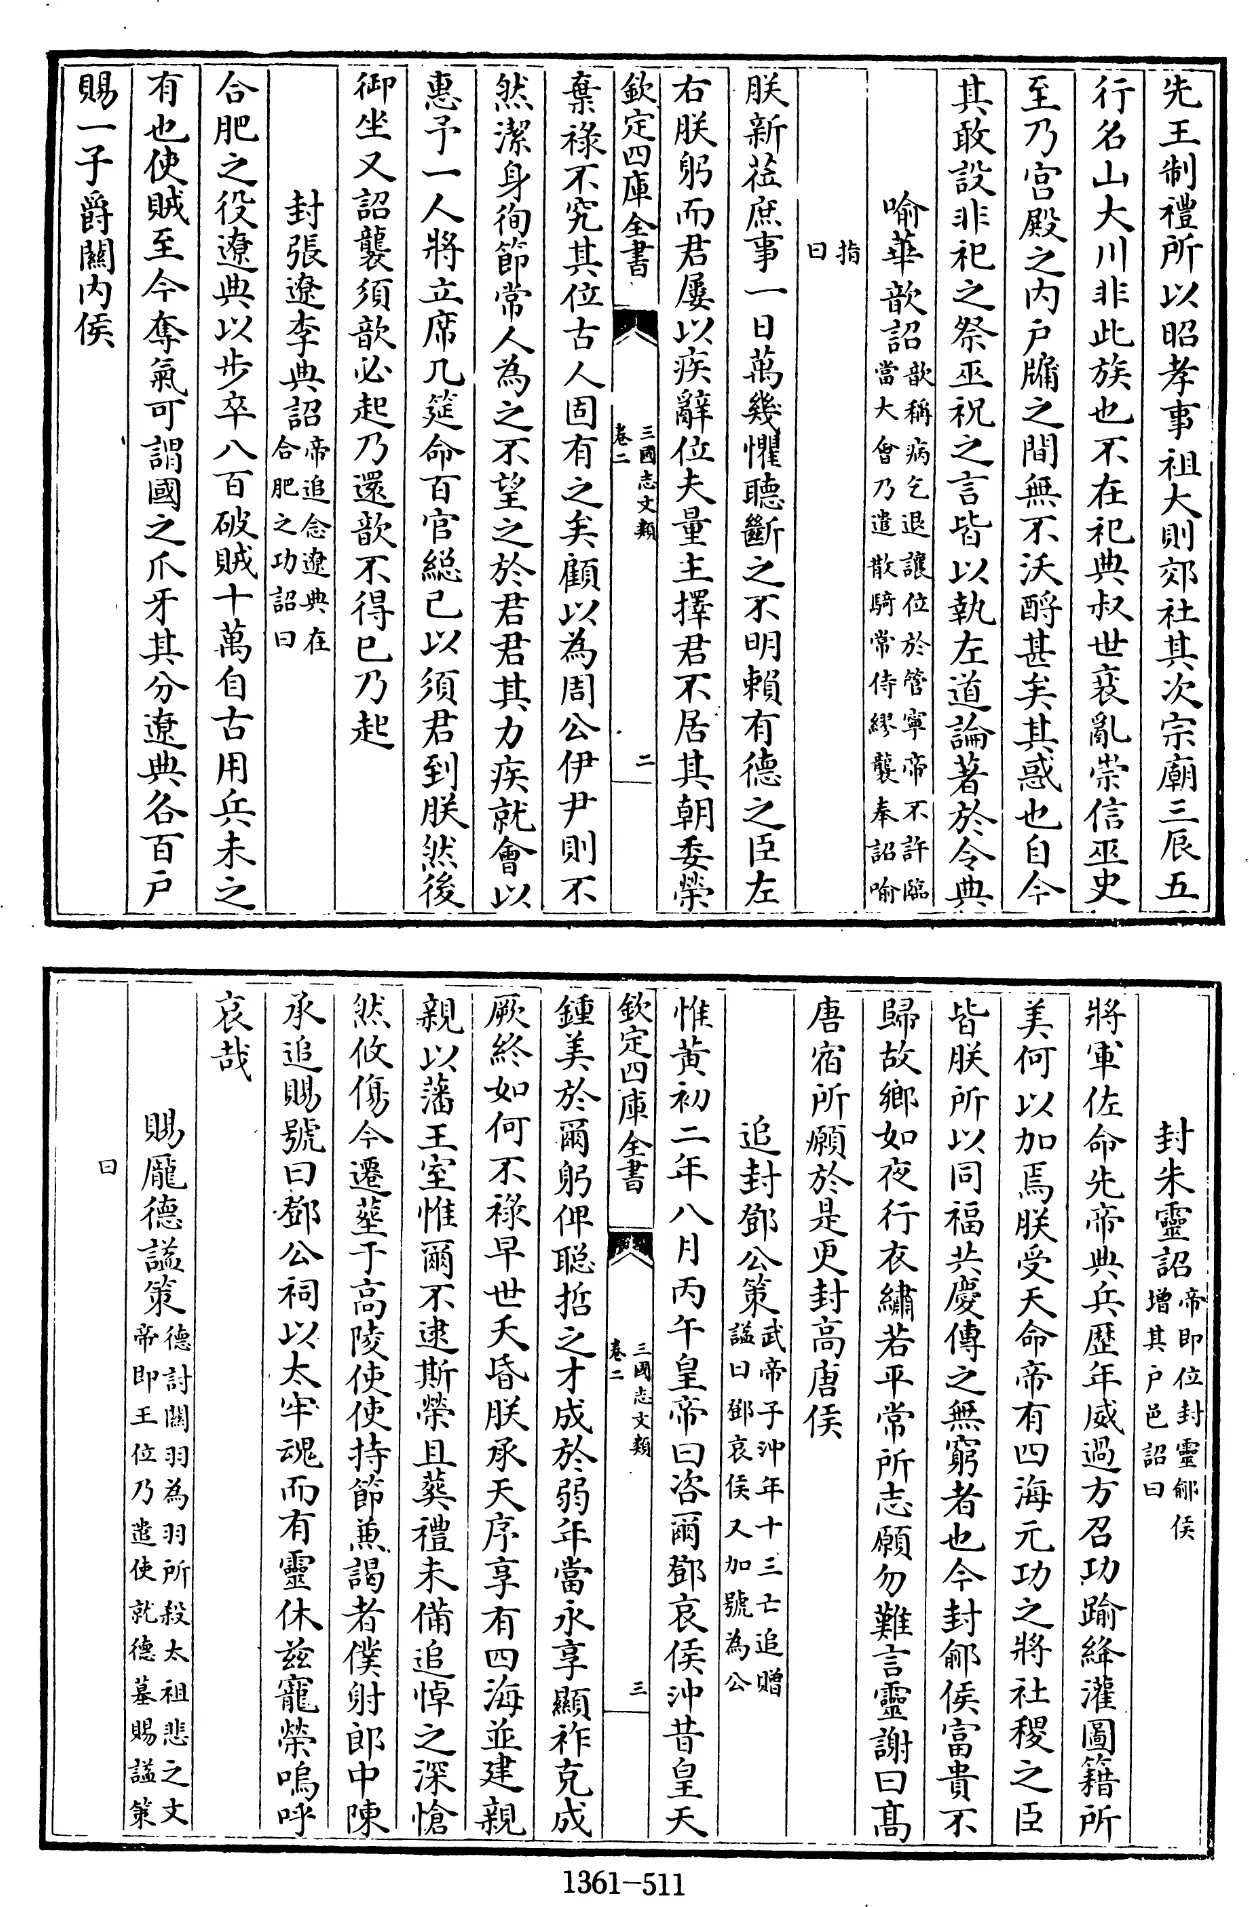 先王制禮所以昭孝事祖大則郊社其次宗廟三辰五
行名山大川非此族也不在祀典叔世衰亂崇信巫史
至乃宮殿之内戸牖之間無不沃酹甚矣其惑也自今
其敢設非祀之祭巫祝之言皆以執左道論著於令典
喻華歆詔歆稱病乞退讓位於管寧帝不許臨
當大會乃遣散騎常侍繆襲奉詔喻
指
曰
朕新莅庶事一日萬幾懼聽斷之不明賴有德之臣左
右朕躬而君屢以疾辭位夫量主擇君不居其朝委榮
欽定四庫全書
三國志文類
卷二
二
棄祿不究其位古人固有之矣顧以為周公伊尹則不
然潔身徇節常人為之不望之於君君其力疾就會以
惠予一人將立席几筵命百官總己以須君到朕然後
御坐又詔襲須歆必起乃還歆不得已乃起
封張遼李典詔帝追念遼典在
合肥之功詔曰
合肥之役遼典以步卒八百破賊十萬自古用兵未之
有也使賊至今奪氣可謂國之爪牙其分遼典各百戸
賜一子爵關内侯
封朱靈詔帝即位封靈鄃侯
增其戸邑詔曰
將軍佐命先帝典兵歴年威過方召功踰絳灌圖籍所
美何以加焉朕受天命帝有四海元功之將社稷之臣
皆朕所以同福共慶傳之無窮者也今封鄃侯富貴不
歸故鄉如夜行衣繡若平常所志願勿難言靈謝曰高
唐宿所願於是更封高唐侯
追封鄧公策武帝子沖年十三亡追贈
諡曰鄧哀侯又加號為公
惟黃初二年八月丙午皇帝曰咨爾鄧哀侯沖昔皇天
欽定四庫全書
三國志文類
卷二
三
鍾美於爾躬俾聰哲之才成於弱年當永享顯祚克成
厥終如何不祿早世夭昏朕承天序享有四海並建親
親以藩王室惟爾不逮斯榮且葬禮未備追悼之深愴
然攸傷今遷葬于高陵使使持節兼謁者僕射郎中陳
承追賜號曰鄧公祠以太牢魂而有靈休兹寵榮嗚呼
哀哉
賜龐德諡策德討關羽為羽所殺太祖悲之文
帝即王位乃遣使就德墓賜諡策
曰
1361-511